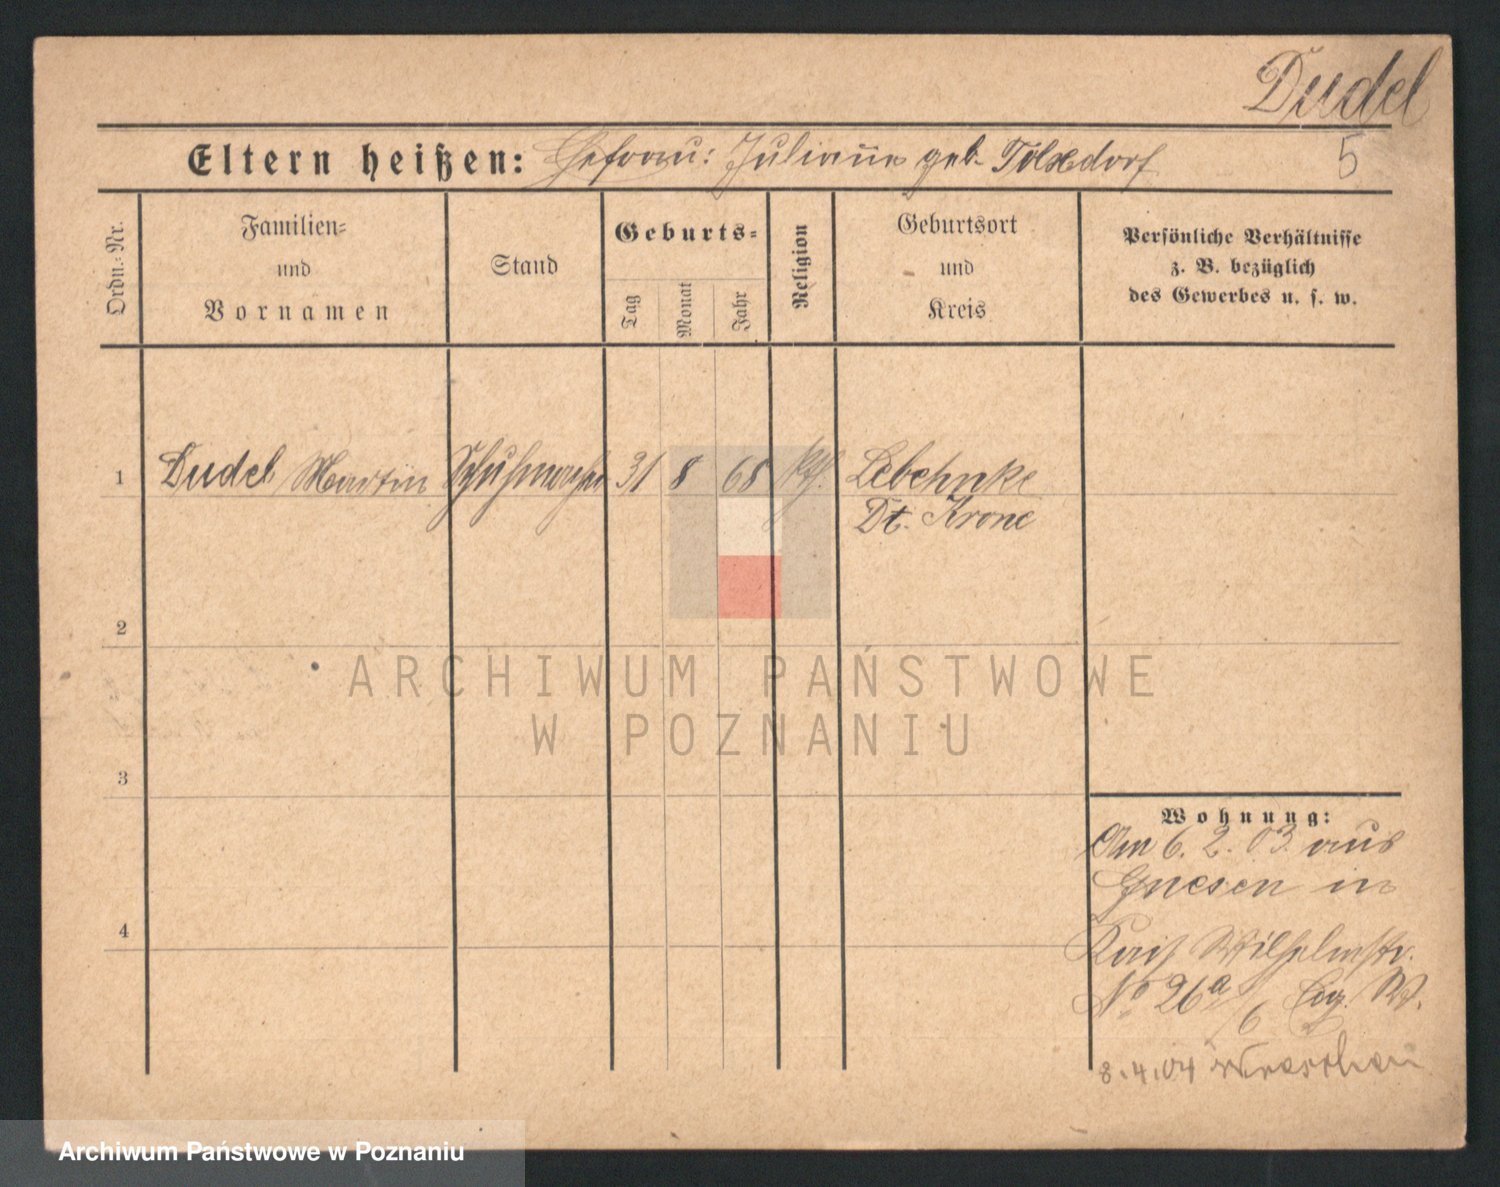 Dudel
Eltern heißen: Ehefrau: Julianne geb. Tölxdorf
5
Ordn.-Nr.
Familien-
und
Vornamen
Stand
Geburts-
Tag
Monat
Jahr
Religion
Geburtsort
und
Kreis
Persönliche Verhältnisse
z. B. bezüglich
des Gewerbes u. s. w.
1 Dudel Martin Schuhmacher 31 8 68 kth. Lebehnke
Dt. Krone
2
ARCHIWUM PAŃSTWOWE
W POZNANIU
3
Wohnung:
Am 6. 2. 03. aus
Gnesen in
4
Kais Wilhelmstr.
No 26a/6 W.
8.4.04 Wreschen
Archiwum Państwowe w Poznaniu